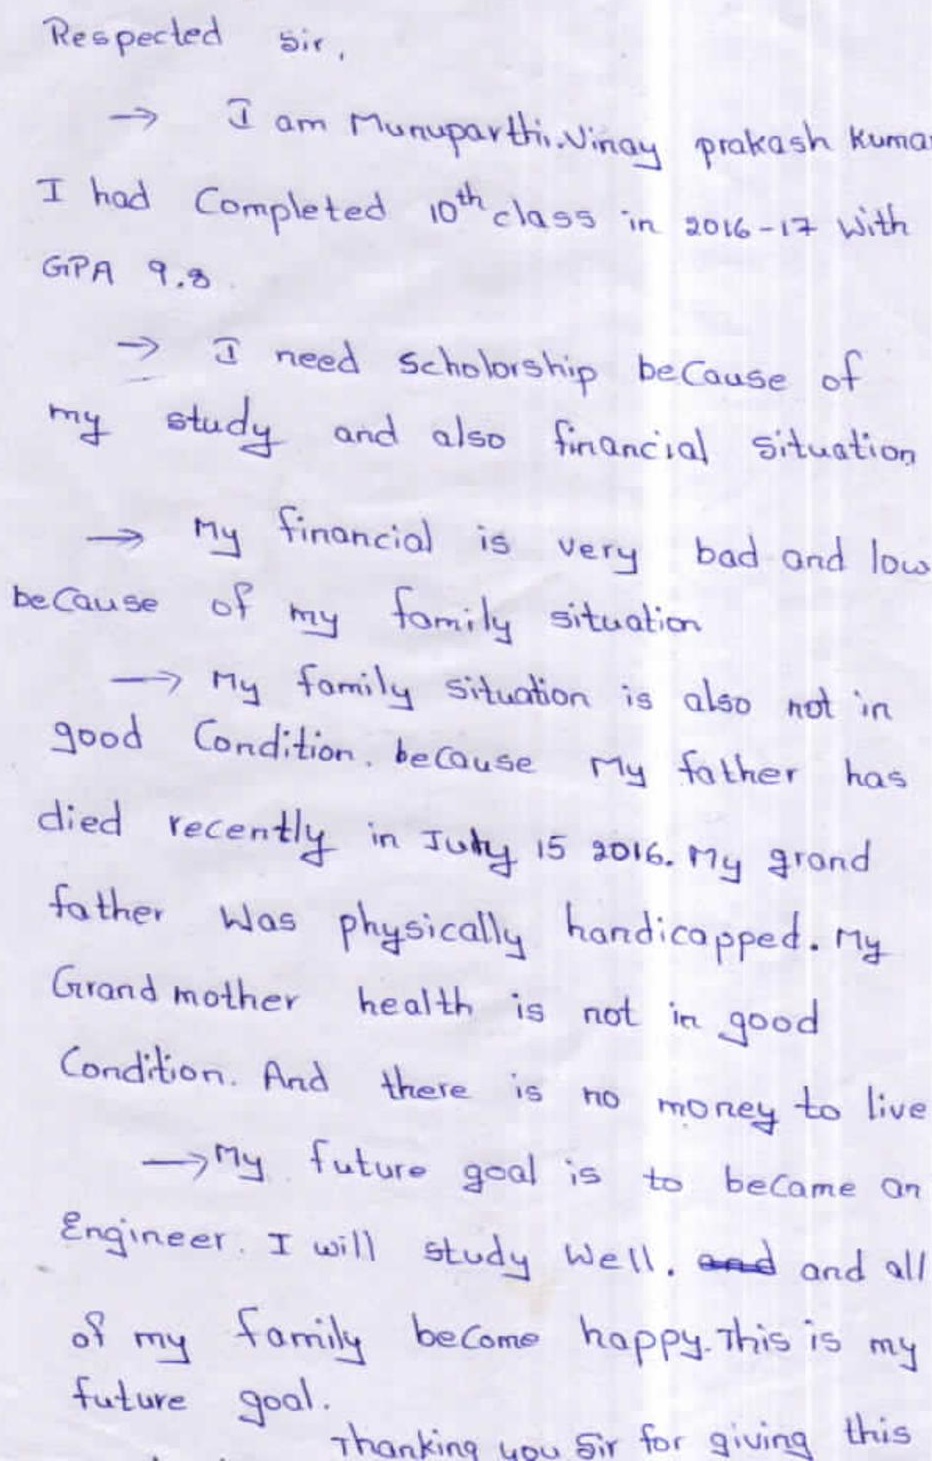 Respected Sir,
→ I am Munuparthi.Vinay prakash Kumar
I had Completed 10th class in 2016-17 with
GPA 9.8
→ I need Scholorship because of
my study and also financial Situation
→ My financial is very bad and low
because of my family situation
→ My family situation is also not in
good Condition. because My father has
died recently in July 15 2016. My grand
father Was physically handicapped. My
Grand mother health is not in good
Condition. And there is no money to live
→ My future goal is to became an
Engineer. I will study Well. and and all
of my family become happy. This is my
future goal.
Thanking you Sir for giving this